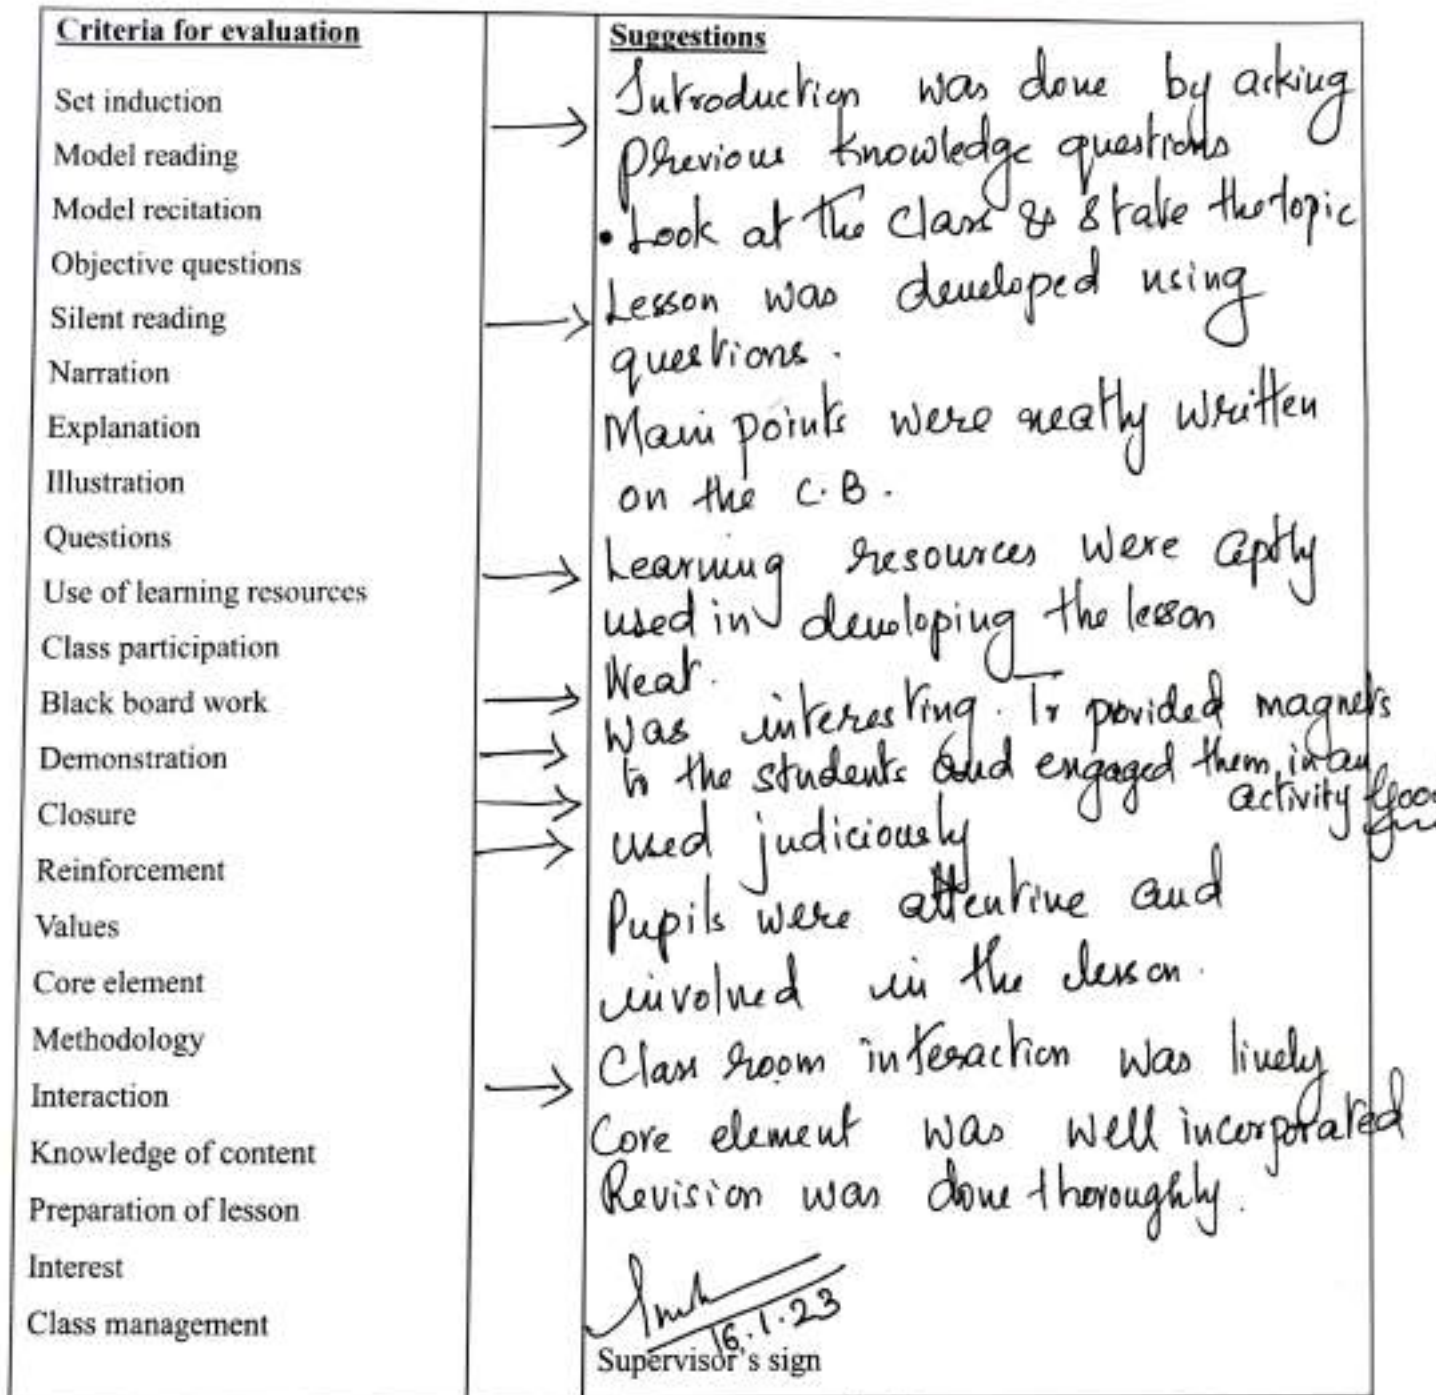 Criteria for evaluation
Set induction
Model reading
Model recitation
Objective questions
Silent reading
Narration
Explanation
Illustration
Questions
Use of learning resources
Class participation
Black board work
Demonstration
Closure
Reinforcement
Values
Core element
Methodology
Interaction
Knowledge of content
Preparation of lesson
Interest
Class management
Suggestions
Introduction was done by asking
previous knowledge questions
• Look at the class & state the topic
Lesson was developed using
questions.
Main points were neatly written
on the C.B.
Learning resources were aptly
used in developing the lesson
Neat.
Was interesting. Tr provided magnets
to the students and engaged them in an
activity
used judiciously
Pupils were attentive and
involved in the lesson.
Class room interaction was lively
Core element was well incorporated
Revision was done thoroughly.
16.1.23
Supervisor's sign